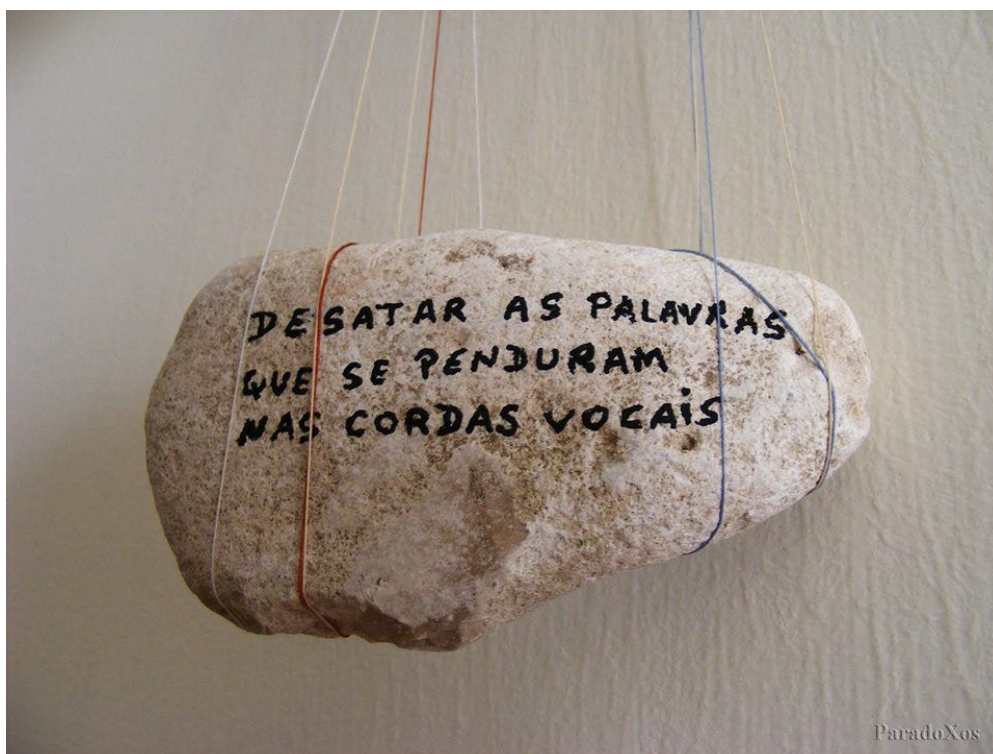 DESATAR AS PALAVRAS
QUE SE PENDURAM
NAS CORDAS VOCAiS
ParadoXos